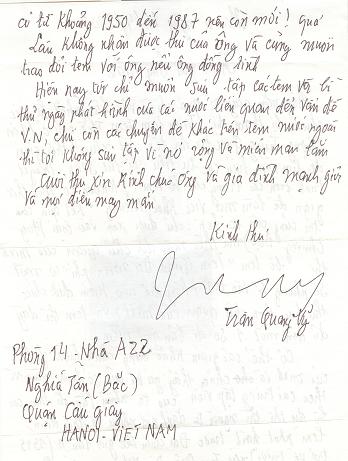 cũ từ khoảng 1950 đến 1987 nên còn mới! quá
Lâu không nhận được thư của ông và cũng muốn
trao đổi tem với ông nếu ông đồng tình
Hiện nay tôi chỉ muốn sưu tập các tem và bì
thư ngày phát hành của các nước liên quan đến vấn đề
V.N, chứ còn các chuyên đề khác trên tem nước ngoài
thì tôi không sưu tập vì nó rộng và miên man lắm
Cuối thư xin kính chúc ông và gia đình mạnh giỏi
và mọi điều may mắn
Kính thư
Trần Quang Vỹ
Phòng 14 - Nhà A22
Nghĩa Tân (Bắc)
Quận Cầu Giấy
HANOI - VIET NAM